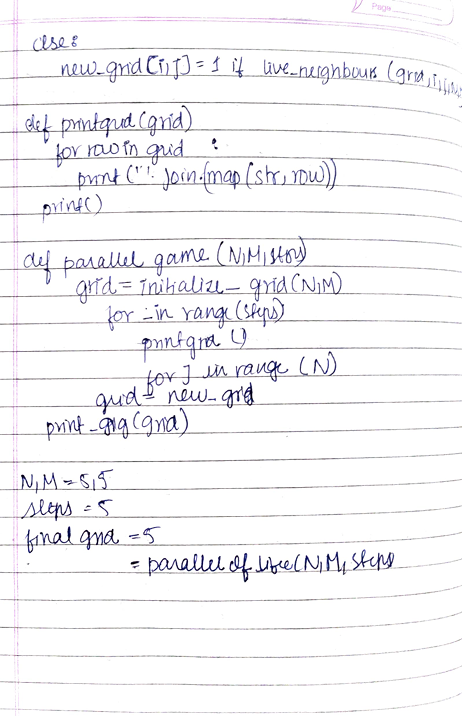 Page
else:
new_grid[i,j] = 1 if live_neighbours (grid,i,j,N,
def printgrid(grid)
for row in grid :
print (''. join.(map(str, row))
print()
def parallel game (N,M, steps)
grid = initialize_ grid(N,M)
for _ in range(steps)
printgrid ()
for J in range (N)
grid = new_grid
print_grg (grid)
N,M = 5,5
steps = 5
final grid = 5
= parallel of live(N,M, steps